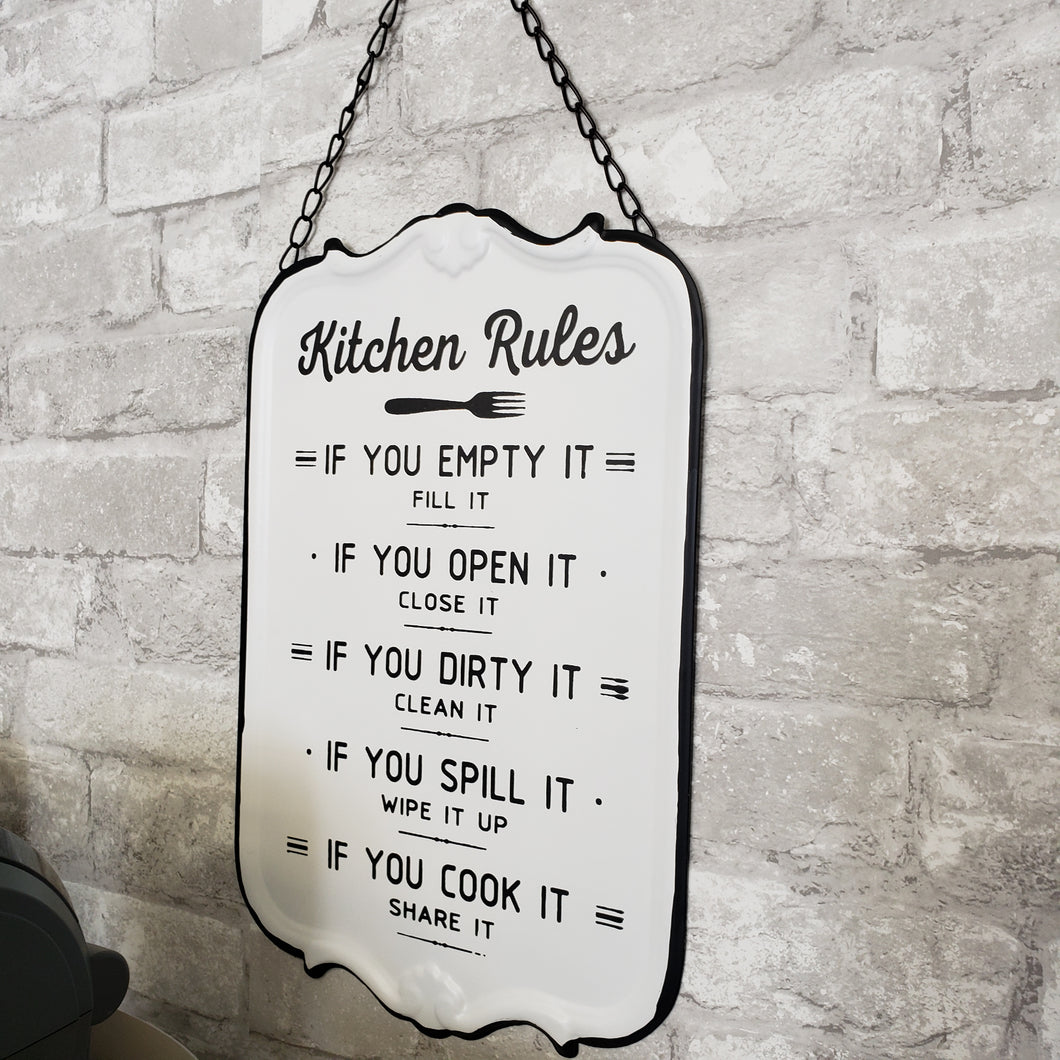 Kitchen Rules
IF YOU EMPTY IT
FILL IT
IF YOU OPEN IT
CLOSE IT
IF YOU DIRTY IT
CLEAN IT
IF YOU SPILL IT
WIPE IT UP
IF YOU COOK IT
SHARE IT